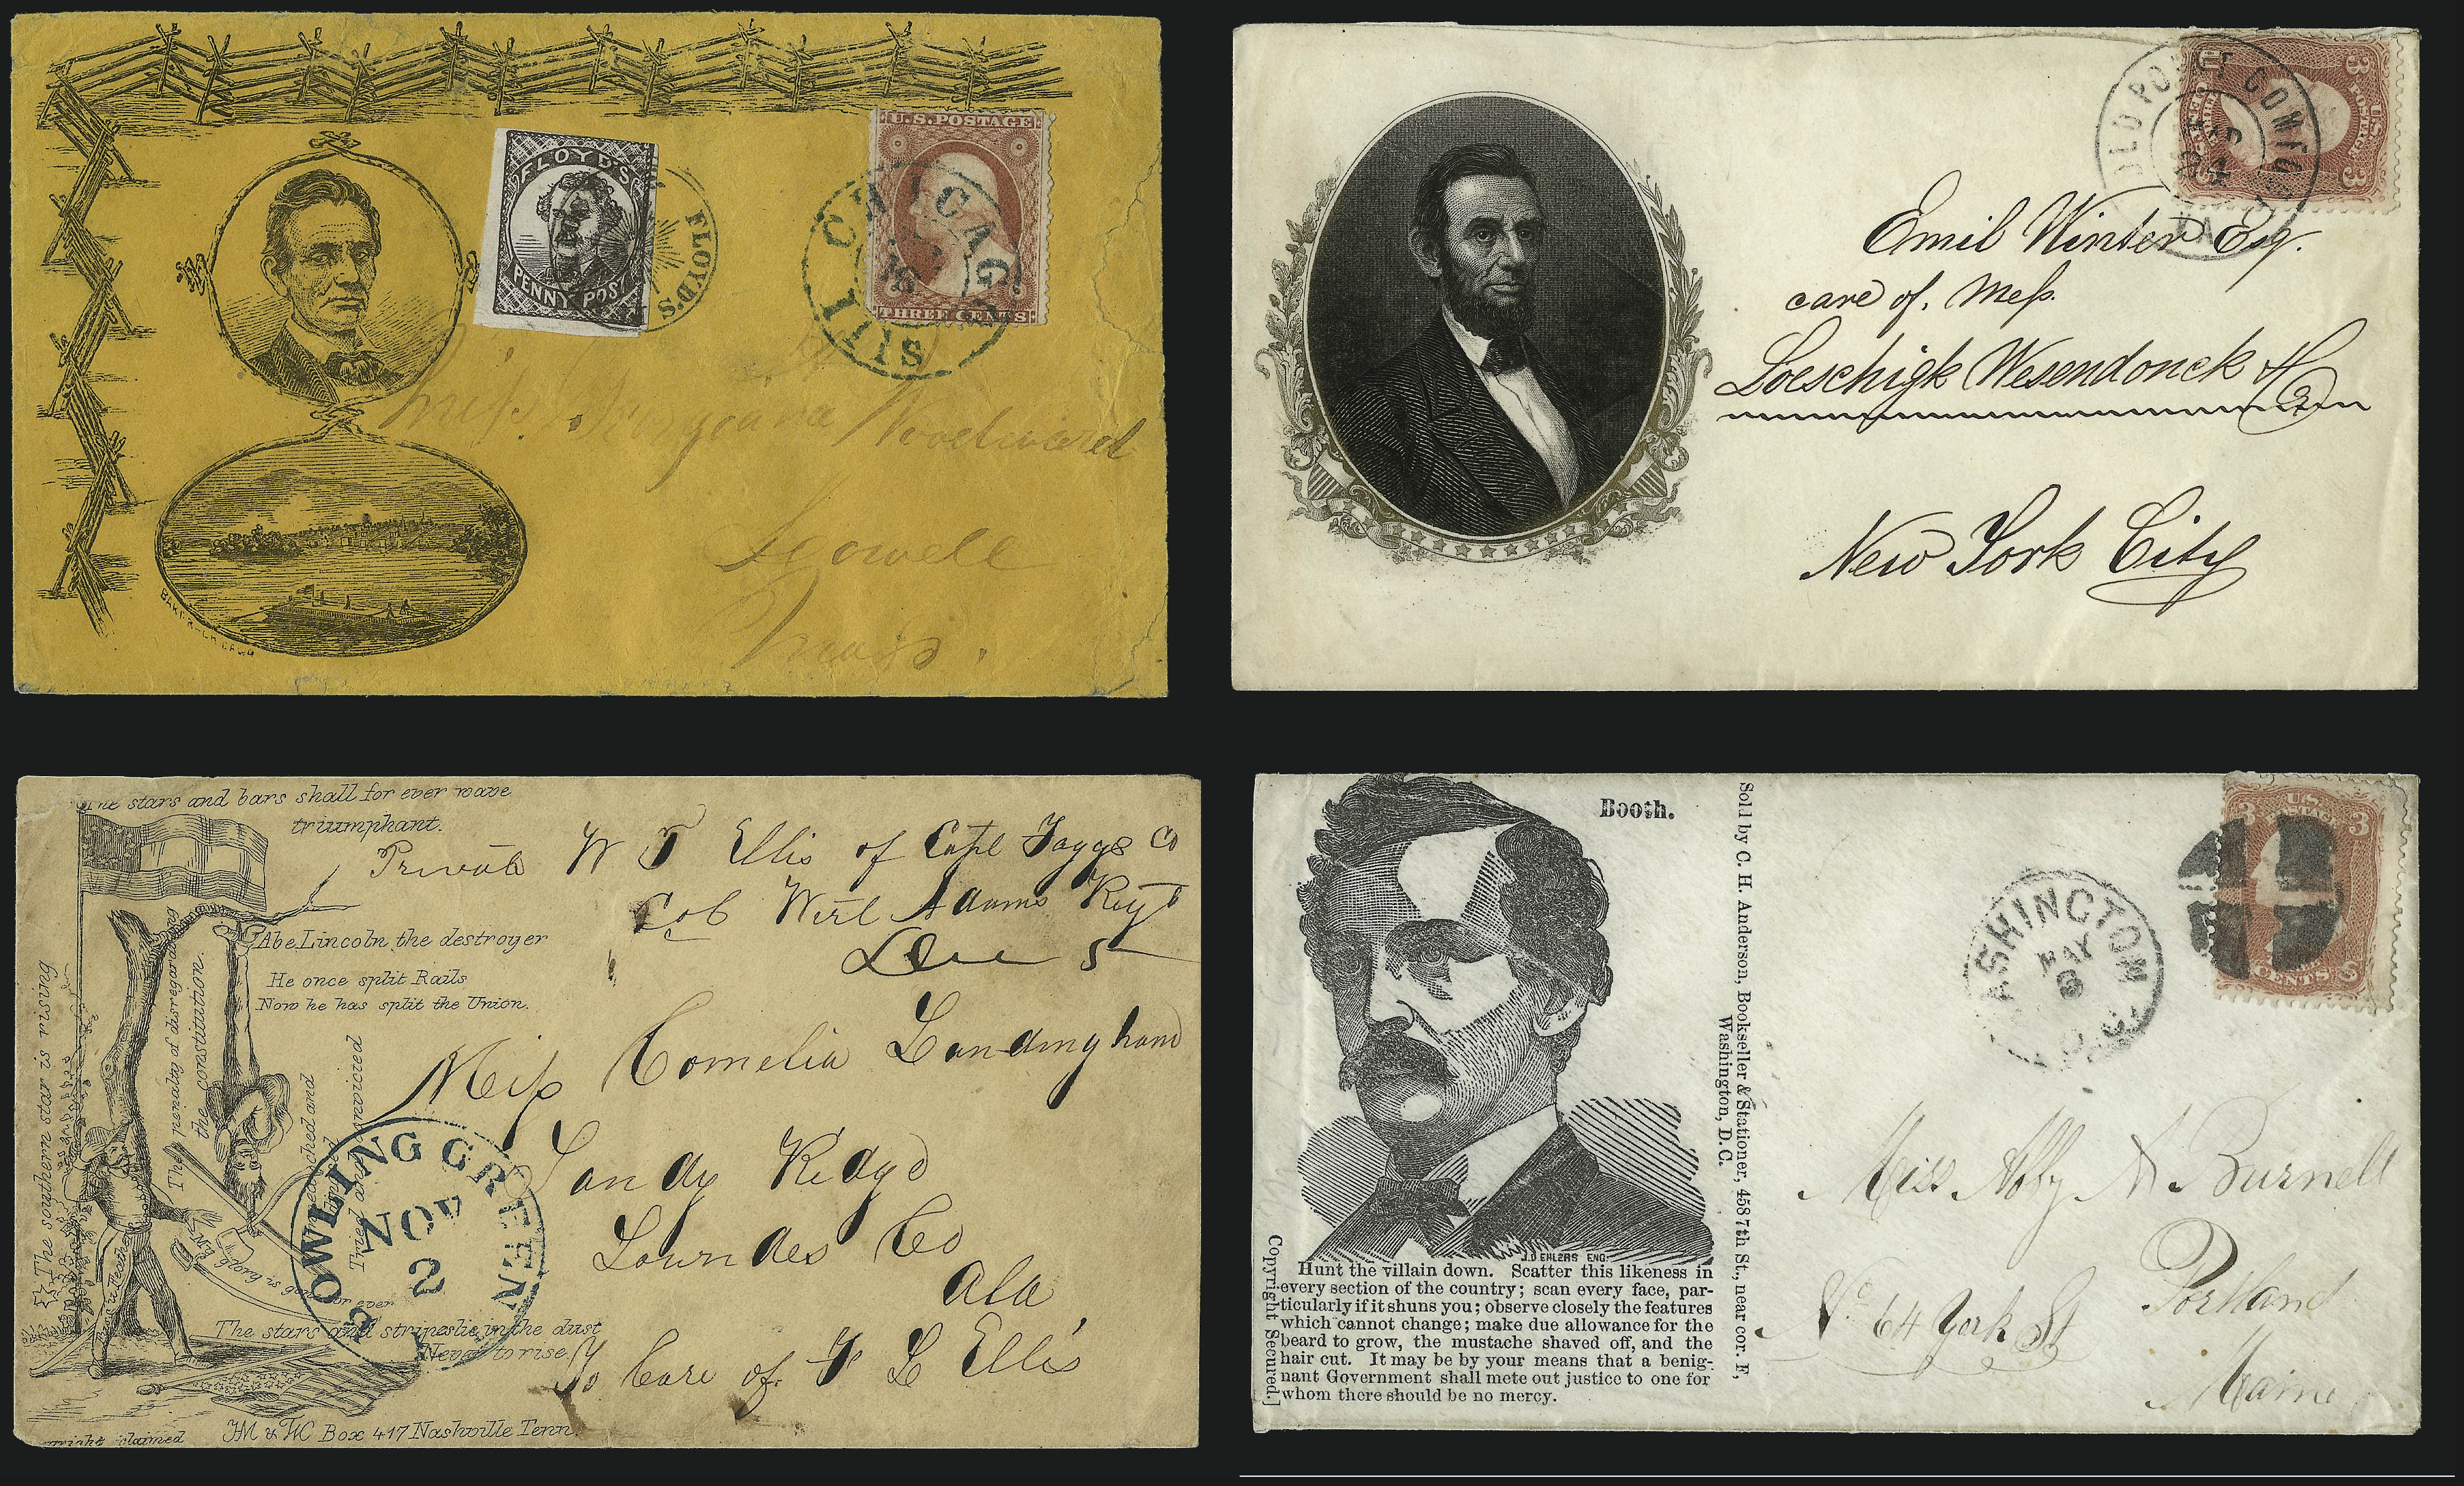 FLOYD'S
PENNY POST
FLOYD'S
U.S. POSTAGE
THREE CENTS
CHICAGO
ILLS
Miss Woodward
Lowell
Mass.
BAKER - CHICAGO
OLD POINT COMFORT
VA
U.S.
POSTAGE
3
3
Emil Winter Esq.
care of. Mess.
Loeschigk Wesendonck & Co
New York City
The stars and bars shall for ever wave
triumphant.
Abe Lincoln the destroyer
He once split Rails
Now he has split the Union.
The southern star is rising
The penalty of disregarding
the constitution.
Tried and convicted
The stars and stripes lie in the dust
Never to rise
JM & WC Box 417 Nashville Tenn.
copyright claimed
Private W T Ellis of Capt Taggs Co
Col Wirt Adams Regt
Due 5
Miss Cornelia Landingham
Sandy Ridge
Lowndes Co
Ala
To Care of T L Ellis
BOWLING GREEN
NOV
2
Booth.
J.D EHLERS ENG.
Hunt the villain down. Scatter this likeness in
every section of the country; scan every face, par-
ticularly if it shuns you; observe closely the features
which cannot change; make due allowance for the
beard to grow, the mustache shaved off, and the
hair cut. It may be by your means that a benig-
nant Government shall mete out justice to one for
whom there should be no mercy.
Copyright Secured.]
Sold by C. H. Anderson, Bookseller & Stationer, 458 7th St., near cor. F,
Washington, D.C.
WASHINGTON
MAY
3
D.C.
3 U.S. 3
POSTAGE
CENTS
Miss Abby N Burnell
Portland
No 64 York St
Maine